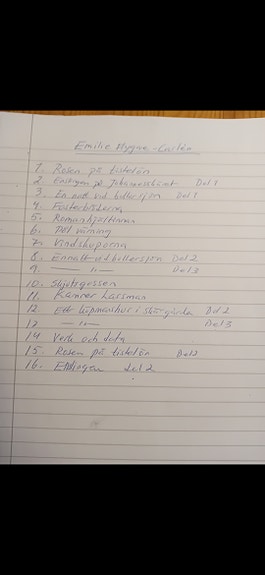 Emilie Flygare-Carlén
1. Rosen på tistelön
2. Enslingen på Johannesskäret Del 1
3. En natt vid bullarsjön Del 1
4. Fosterbröderna
5. Romanhjältinnan
6. Det värning
7. Vindskuporna
8. En natt vid bullarsjön Del 2
9. — " — Del 3
10. Skjutsgossen
11. Kamner Lassman
12. Ett köpmanhus i skärgården Del 2
13 — " — Del 3
14 Verk och data
15. Rosen på tistelön Del 2
16. Del 2